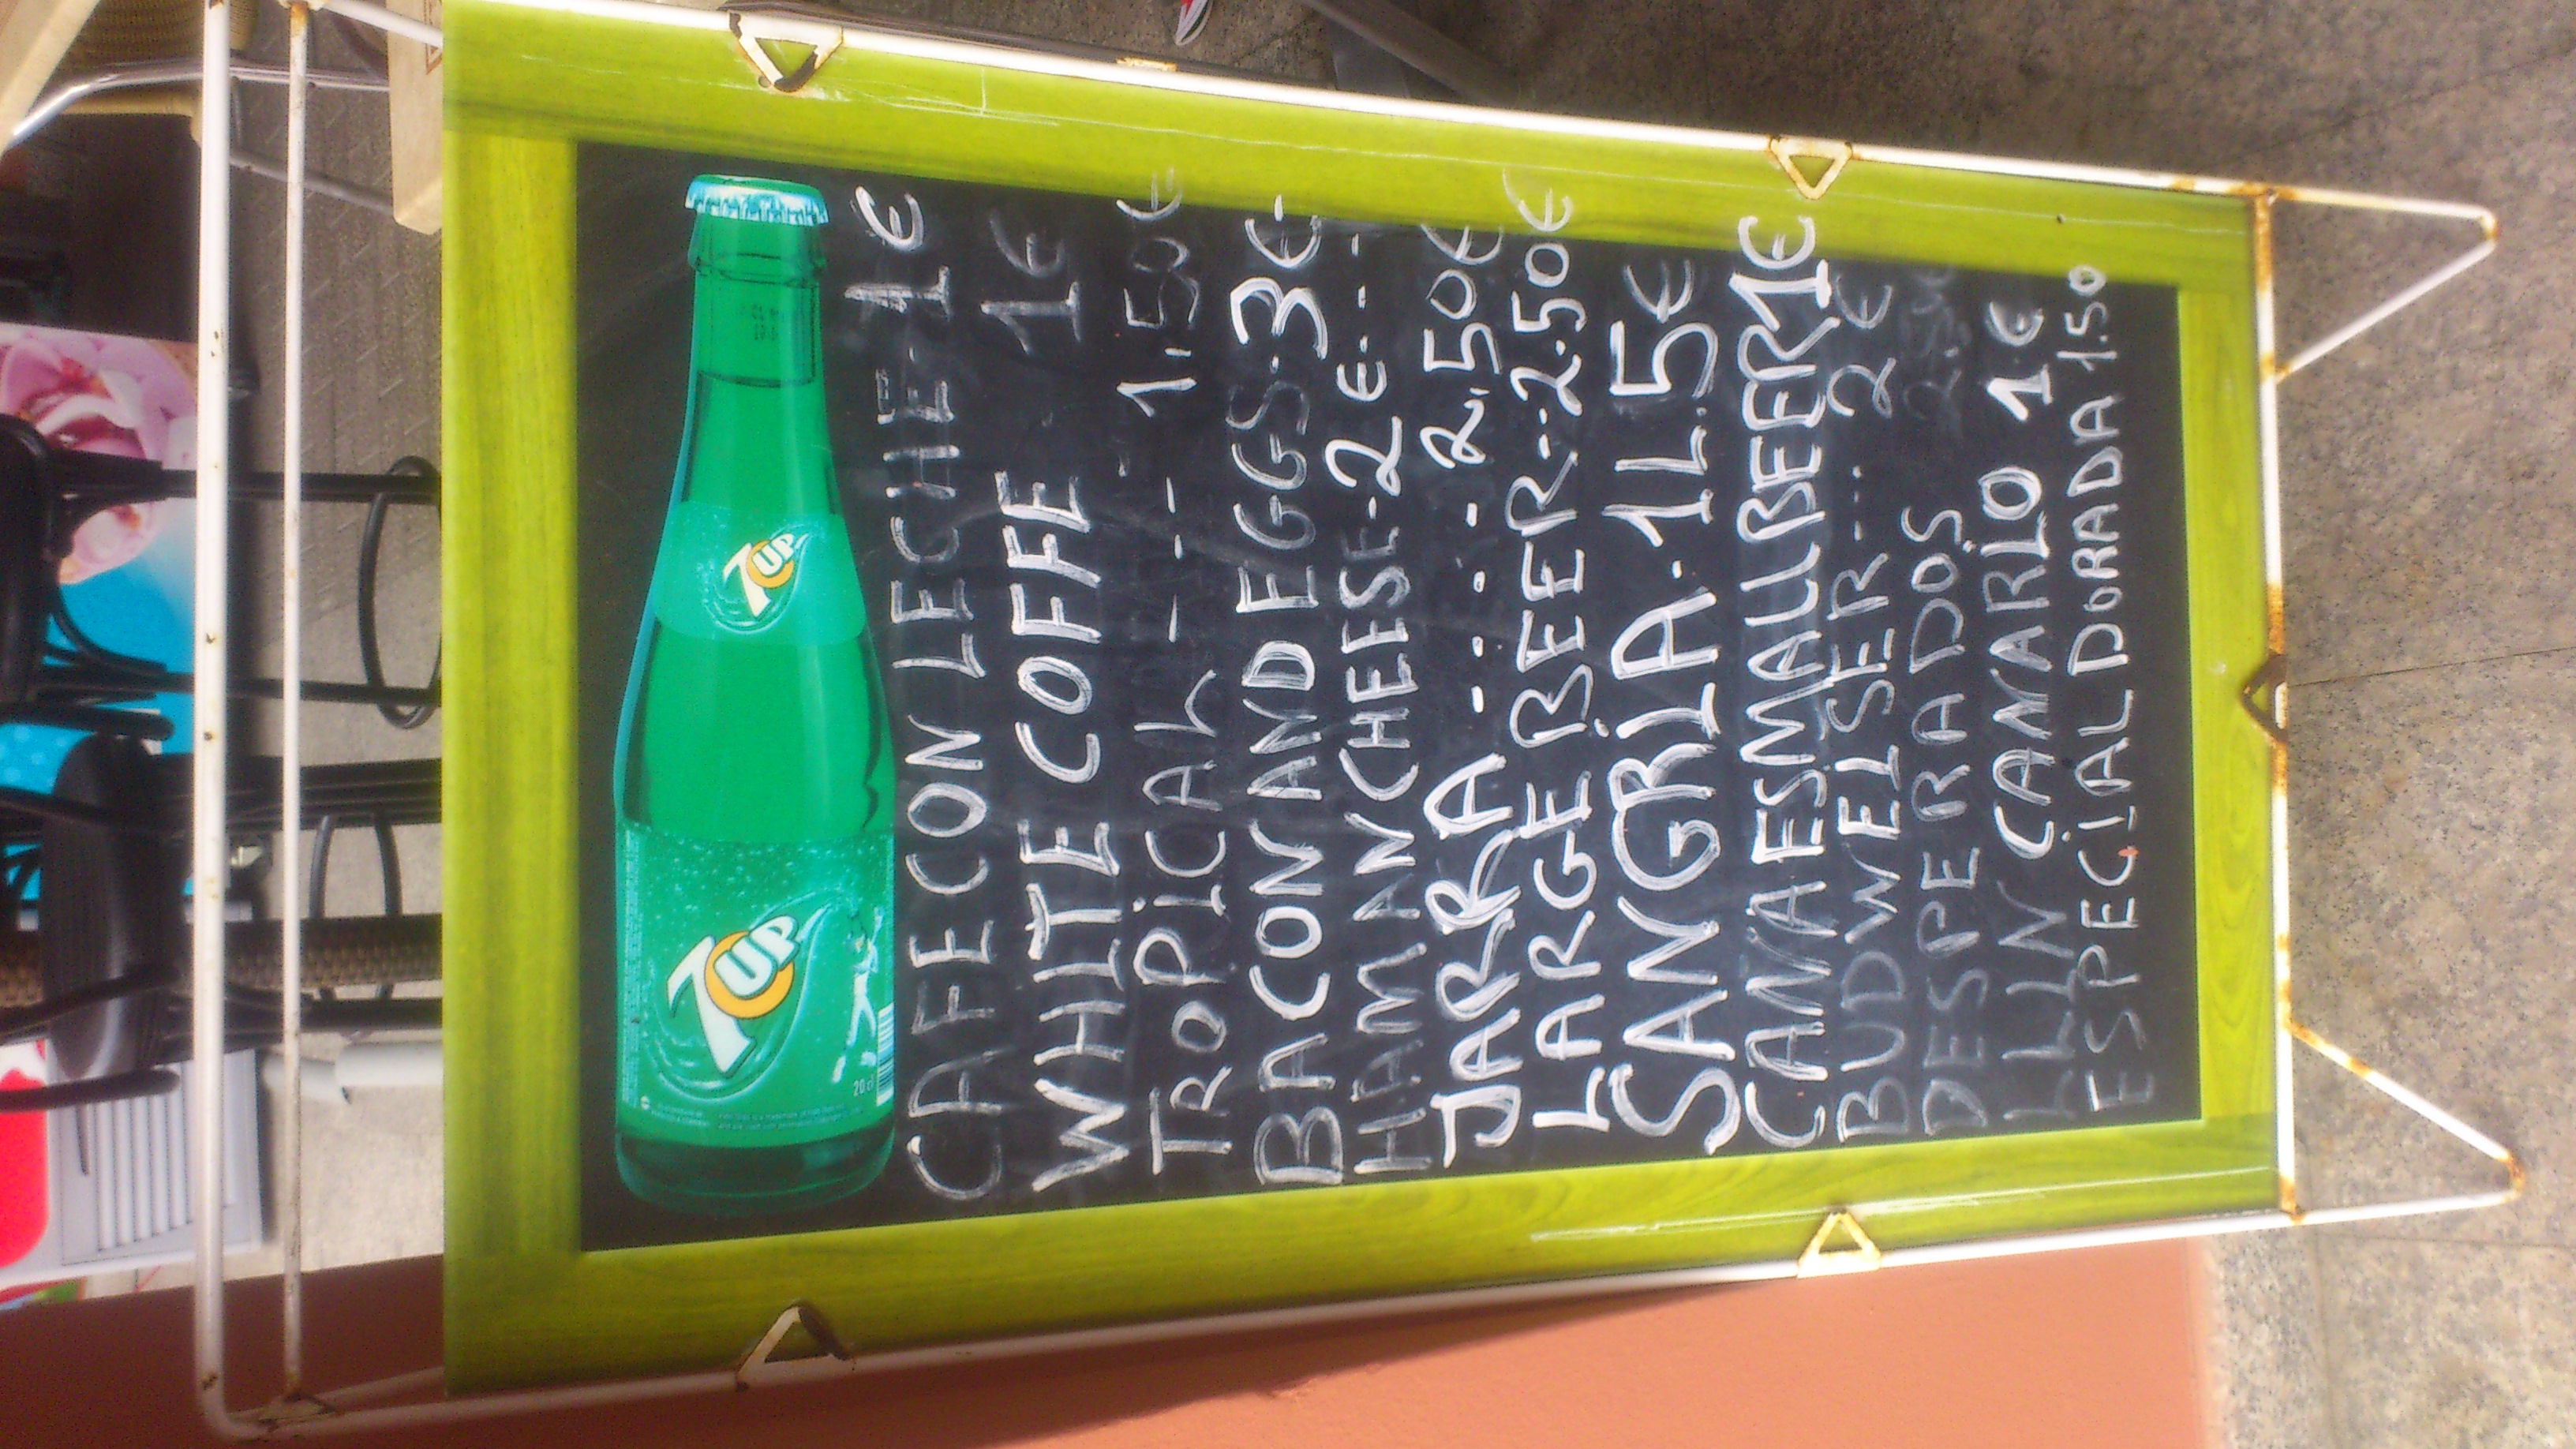 7UP
7UP
20 cl
CAFE CON LECHE-1€
WHITE COFFE 1€
TROPICAL--- 1.50€
BACON AND EGGS.3€-
HAMANCHEESE-2€---
JARRA ---- 2.50€
LARGE BEER--2.50€
SANGRIA.1L.5€
CANAESMALLBEER1€
BUDWEISER--- 2€
DESPERADOS 2.50
CANARIO 1.€
ESPECIAL DORADA 1.50